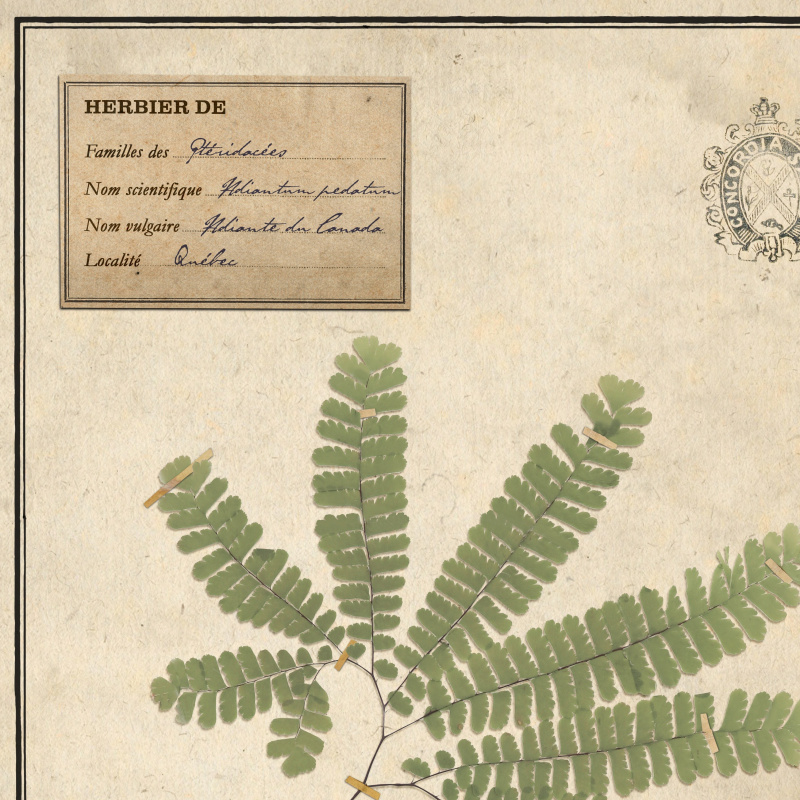 HERBIER DE
Familles des Ptéridacées
Nom scientifique Adiantum pedatum
Nom vulgaire Adiante du Canada
Localité Québec
CONCORDIA S